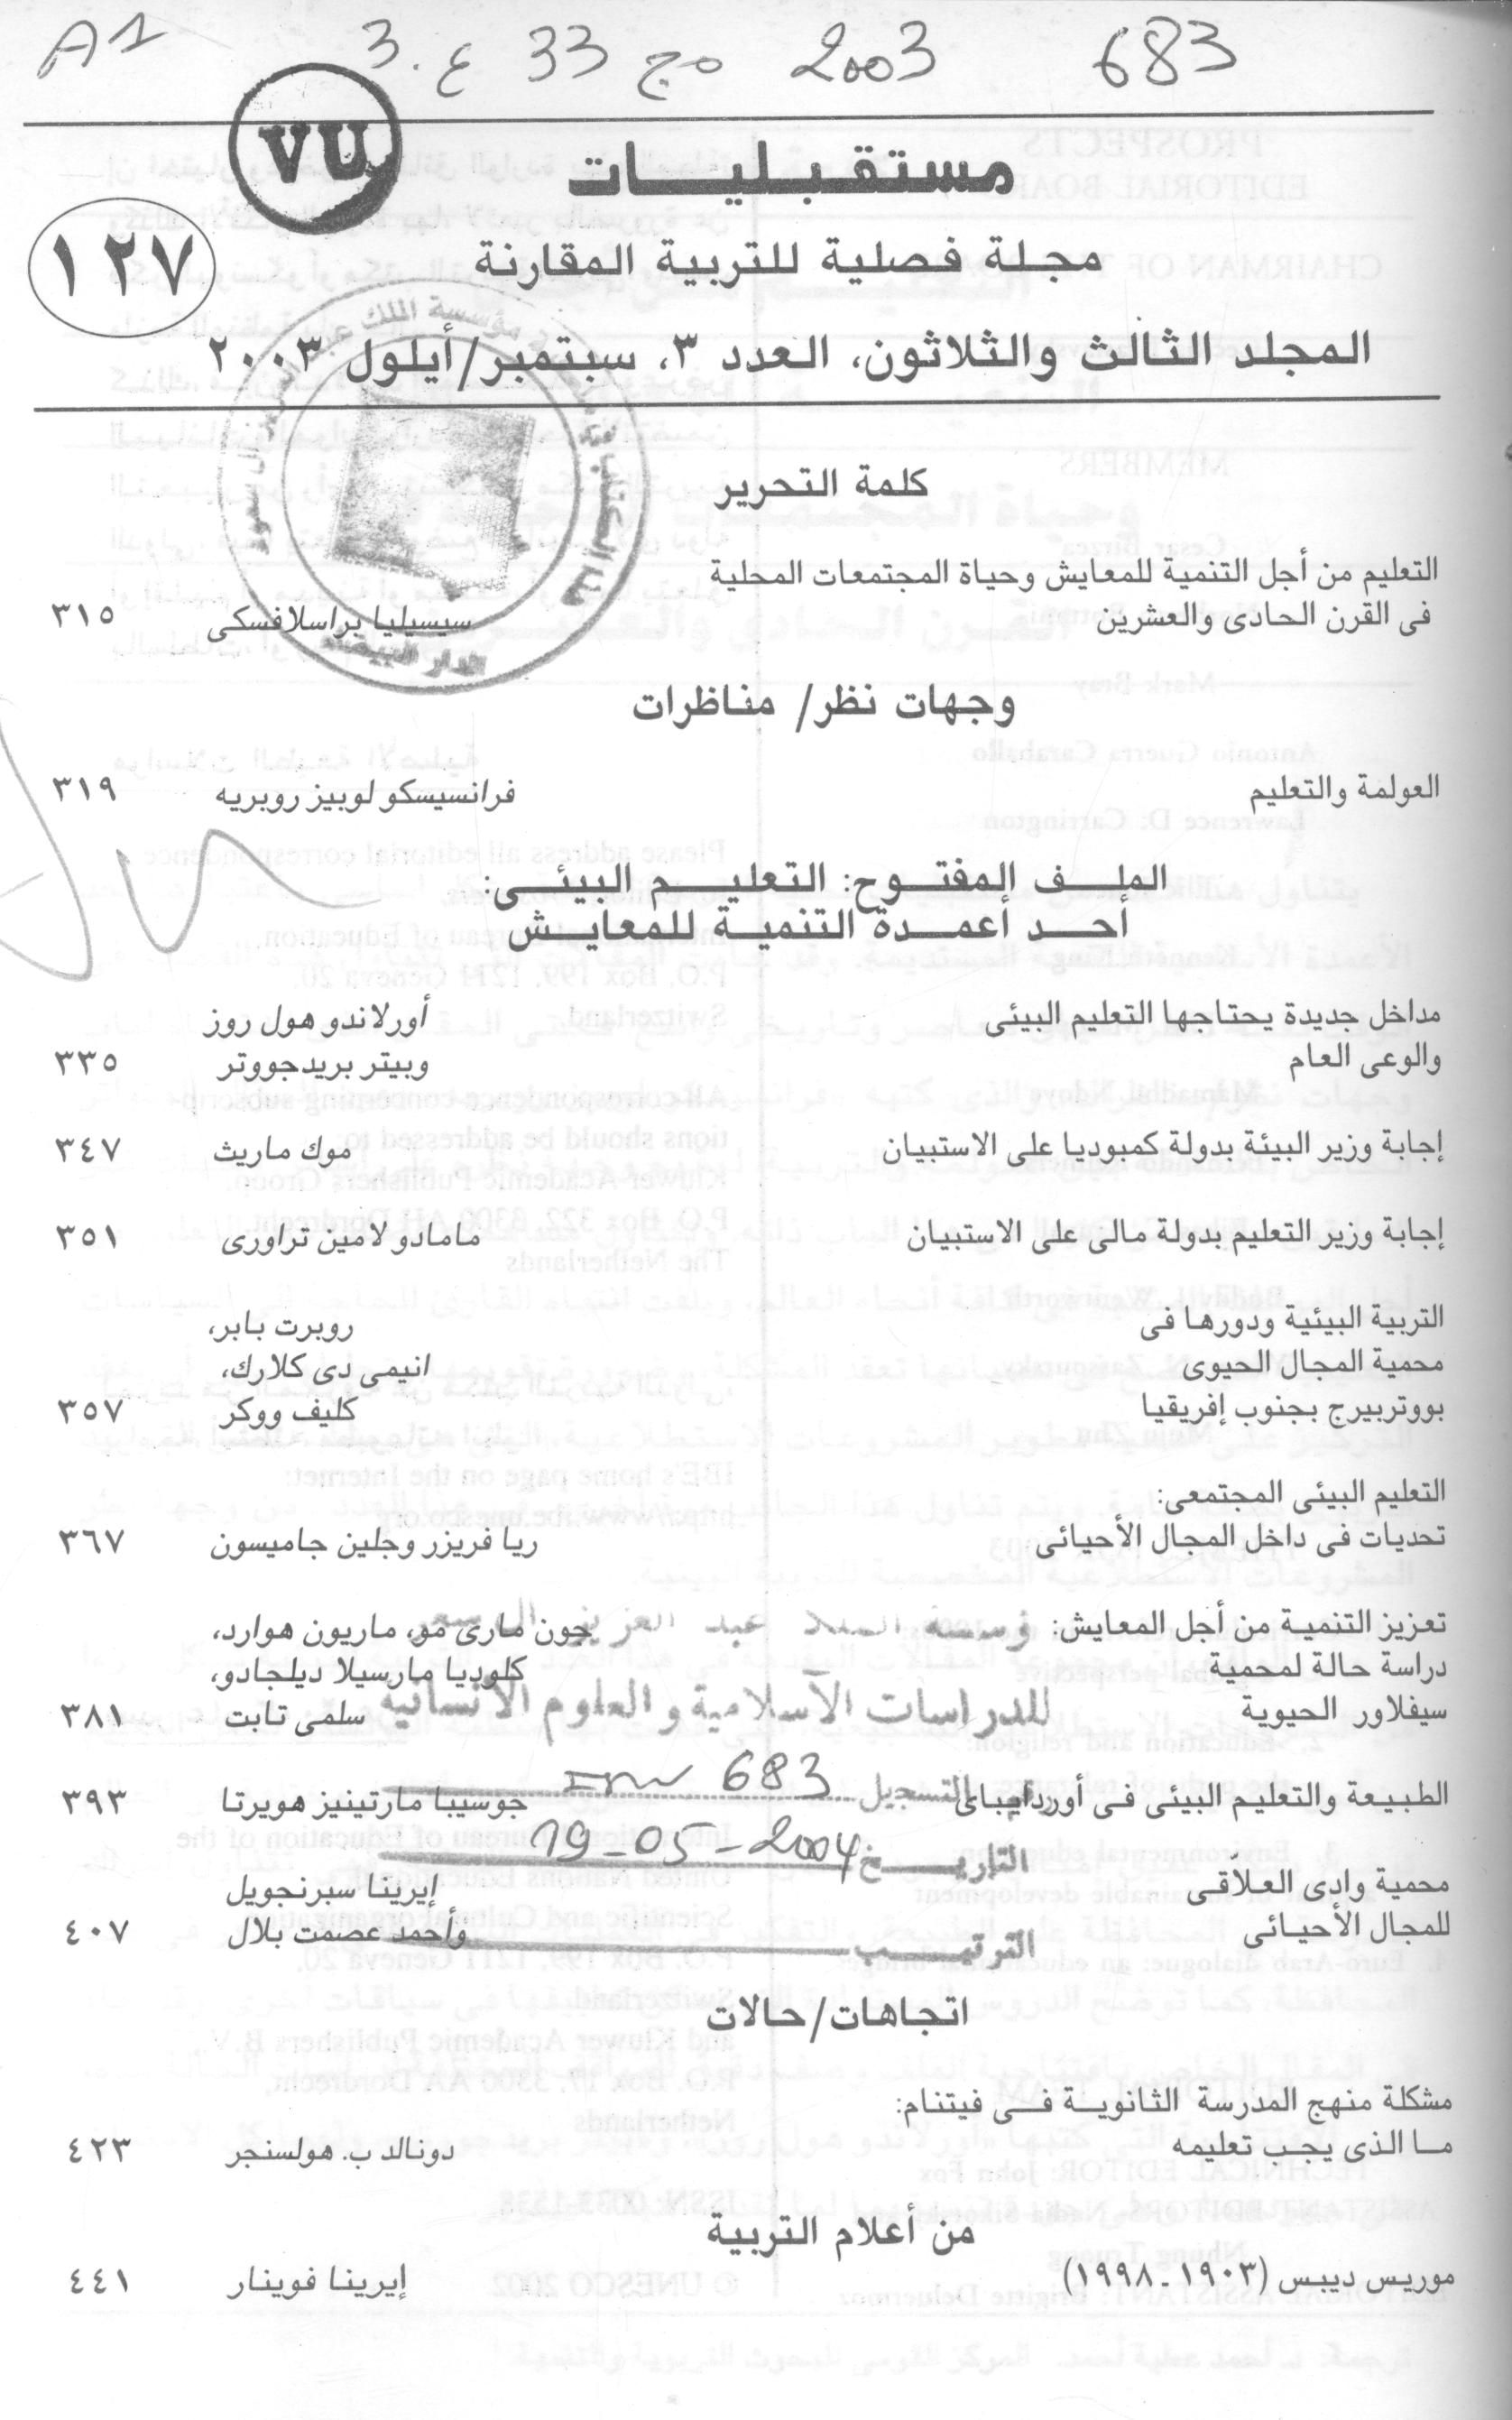 A1 3 .ع 33 مج 2003 683
VU
مستقبليات
١٢٧
مجلة فصلية للتربية المقارنة
المجلد الثالث والثلاثون، العدد ٣، سبتمبر/أيلول ٢٠٠٣
كلمة التحرير
التعليم من أجل التنمية للمعايش وحياة المجتمعات المحلية
فى القرن الحادى والعشرين سيسيليا براسلافسكى ٣١٥
الدار البيضاء
وجهات نظر/ مناظرات
العولمة والتعليم فرانسيسكو لوبيز روبريه ٣١٩
الملف المفتوح: التعليم البيئى:
أحد أعمدة التنمية للمعايش
مداخل جديدة يحتاجها التعليم البيئى أورلاندو هول روز
والوعى العام وبيتر بريدجووتر ٣٣٥
إجابة وزير البيئة بدولة كمبوديا على الاستبيان موك ماريث ٣٤٧
إجابة وزير التعليم بدولة مالى على الاستبيان مامادو لامين تراورى ٣٥١
التربية البيئية ودورها فى روبرت بابر،
محمية المجال الحيوى انيمى دى كلارك،
بووتربيرج بجنوب إفريقيا كليف ووكر ٣٥٧
التعليم البيئى المجتمعى:
تحديات فى داخل المجال الأحيائى ريا فريزر وجلين جاميسون ٣٦٧
تعزيز التنمية من أجل المعايش: جون مارى مو، ماريون هوارد،
دراسة حالة لمحمية كلوديا مارسيلا ديلجادو،
للدراسات الآسلامية و العلوم الانسانية
سيفلاور الحيوية سلمى ثابت ٣٨١
الطبيعة والتعليم البيئى فى أوردايباى جوسيبا مارتينيز هويرتا ٣٩٣
رقم التسجيل 683
التاريخ 19-05-2004
محمية وادى العلاّقى إيرينا سبرنجويل
للمجال الأحيائى وأحمد عصمت بلال ٤٠٧
الترتيب
اتجاهات/حالات
مشكلة منهج المدرسة الثانوية فى فيتنام:
ما الذى يجب تعليمه دونالد ب. هولسنجر ٤٢٣
من أعلام التربية
موريس ديبس (١٩٠٣-١٩٩٨) إيرينا فوينار ٤٤١